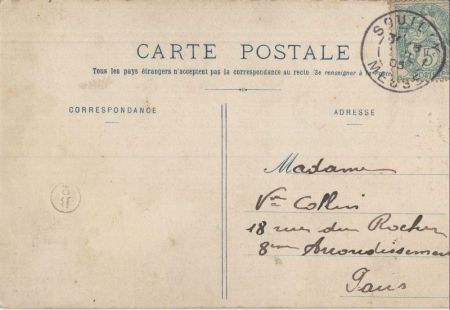 SOUILLY
MEUSE
5
CARTE POSTALE
Tous les pays étrangers n'acceptent pas la correspondance au recto (Se renseigner à la
CORRESPONDANCE
ADRESSE
Madame
Vve Collin
18 rue du Rocher
8eme Arrondissement
Paris